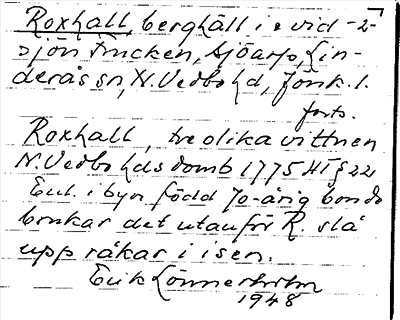 Roxhall, berghäll i e vid -2-
sjön Fricken, Sjöarp, Lin-
derås sn, N. Vedbo hd, Jönk. l.
forts.
Roxhall, tre olika vittnen
N. Vedbo hds domb 1775 HT § 22
Enl. i byn född 70-årig bonde
brukar det utanför R. slå
upp råkar i isen.
Erik Lönnerholm
1948